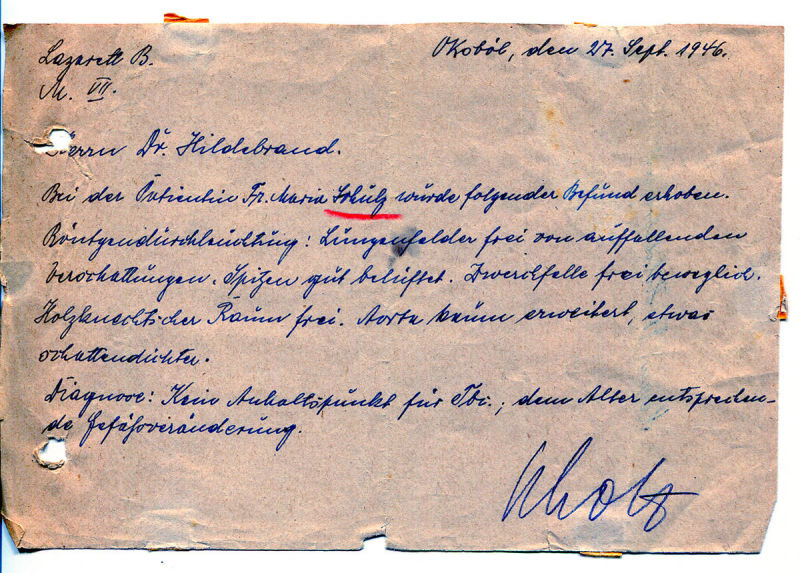 Lazarett B.
Oksbøl, den 27. Sept. 1946.
M. VII.
Herrn Dr. Hildebrand.
Bei der Patientin Fr. Maria Schulz wurde folgender Befund erhoben.
Röntgendurchleuchtung: Lungenfelder frei von auffallenden
Verschattungen. Spitzen gut belüftet. Zwerchfelle frei beweglich.
Holzknechtscher Raum frei. Aorta kaum erweitert, etwas
schattendichter.
Diagnose: Kein Anhaltspunkt für Tbc.; dem Alter entsprechen-
de Gefäßveränderung.